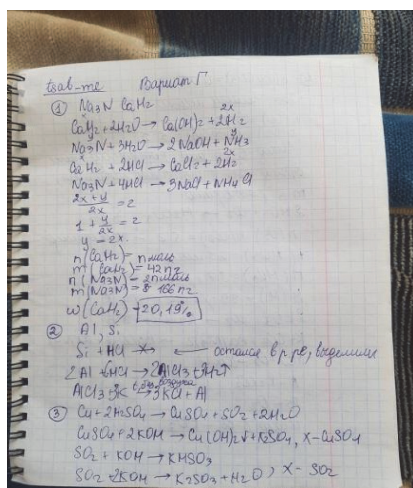 tsab-mc Вариант Г
① Na3N CaH2
2x
CaH2 + 2H2O → Ca(OH)2 + 2H2
y y
Na3N + 3H2O → 2NaOH + NH3
x 2x
CaH2 + 2HCl → CaCl2 + 2H2
Na3N + 4HCl → 3NaCl + NH4Cl
2x + y / 2x = 2
1 + y / 2x = 2
y = 2x.
n(CaH2) = n моль
m(CaH2) = 42n г
n(Na3N) = 2n моль
m(Na3N) = 166n г
w(CaH2) = 20,19%
② Al, Si
Si + HCl ↛ ← остался в р-ре, выделили
2Al + 6HCl → 2AlCl3 + 3H2↑
AlCl3 + 3K → 3KCl + Al
③ Cu + 2H2SO4 → CuSO4 + SO2 + 2H2O
CuSO4 + 2KOH → Cu(OH)2↓ + K2SO4, X - CuSO4
SO2 + KOH → KHSO3
SO2 + 2KOH → K2SO3 + H2O, X - SO2